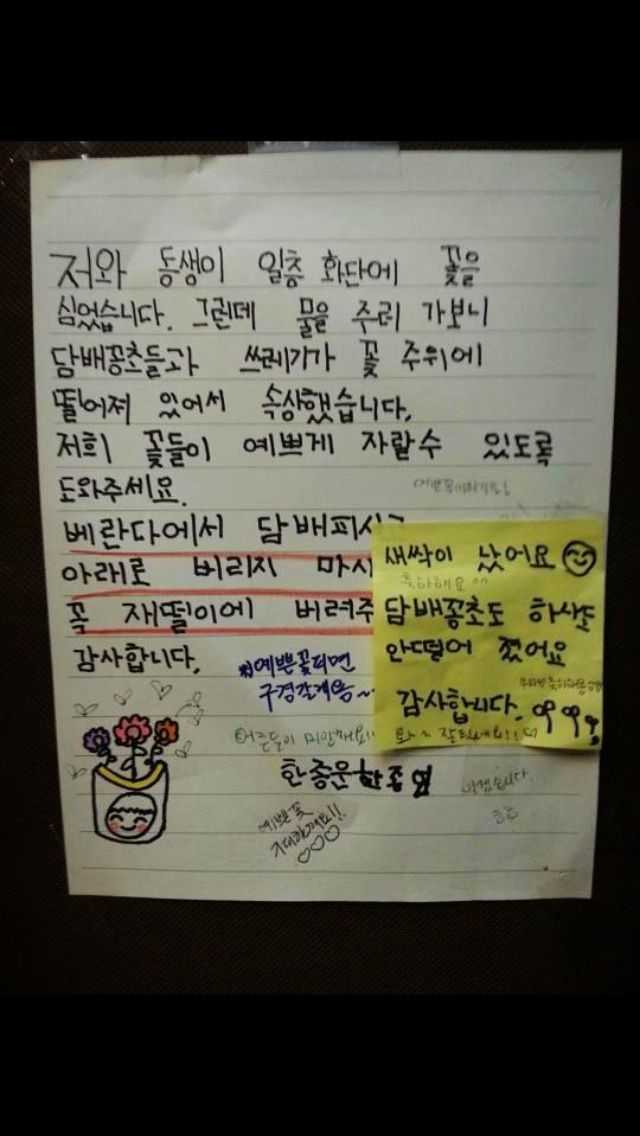 저와 동생이 일층 화단에 꽃을
심었습니다. 그런데 물을 주러 가보니
담배꽁초들과 쓰레기가 꽃 주위에
떨어져 있어서 속상했습니다.
저희 꽃들이 예쁘게 자랄수 있도록
도와주세요.
베란다에서 담배피시고
아래로 버리지 마시
꼭 재떨이에 버려주
감사합니다.
예쁜꽃피면
구경갈게용~
어른들이 미안해요!!
한종운
예쁜꽃
기대할께요!!
새싹이 났어요
축하해요^^
담배꽁초도 하나도
안떨어 졌어요
감사합니다.